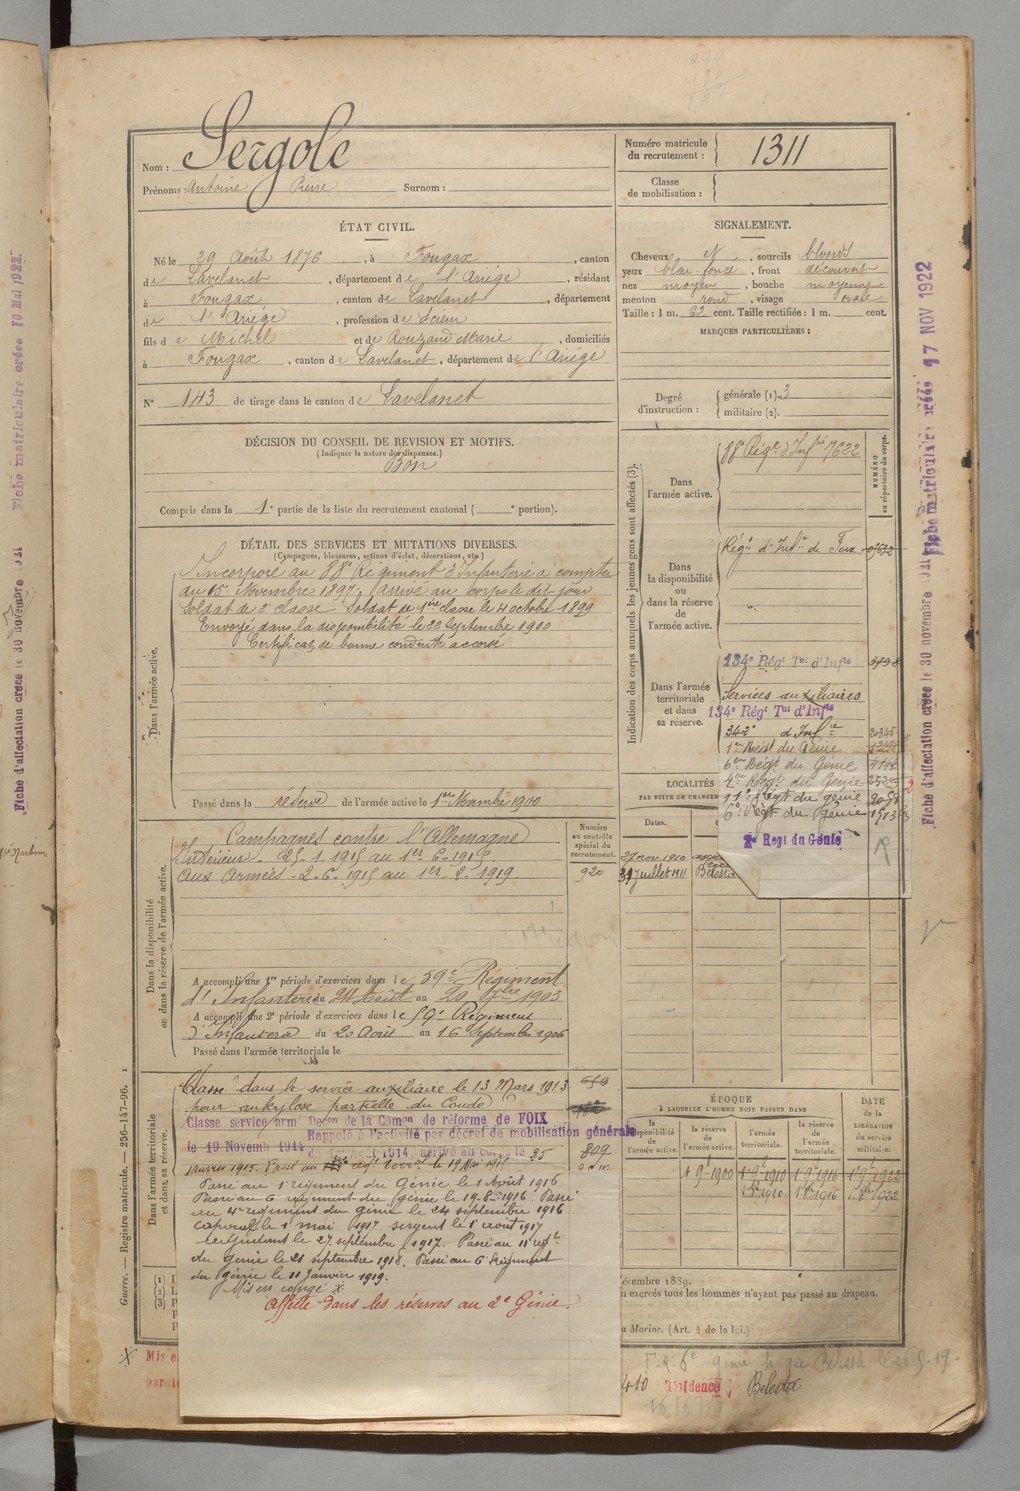 Nom : Sergole
Prénoms : Antoine Pierre Surnom :
Numéro matricule du recrutement : 1311
Classe de mobilisation :
ÉTAT CIVIL.
Né le 29 Août 1876, à Fougax, canton
de Lavelanet, département de l'Ariége, résidant
à Fougax, canton de Lavelanet, département
de l'Ariége, profession de Scieur
fils de Michel et de Rouzaud Marie, domiciliés
à Fougax, canton de Lavelanet, département de l'Ariége
N° 143 de tirage dans le canton de Lavelanet
SIGNALEMENT.
Cheveux N, sourcils blonds
yeux bleu-foncé, front découvert
nez moyen, bouche moyenne
menton rond, visage ovale
Taille : 1 m. 62 cent. Taille rectifiée : 1 m. cent.
MARQUES PARTICULIÈRES :
Degré d'instruction : générale (1). 3
militaire (2).
DÉCISION DU CONSEIL DE REVISION ET MOTIFS.
(Indiquer la nature des dispenses.)
Bon
Compris dans la 1e partie de la liste du recrutement cantonal ( e portion).
DÉTAIL DES SERVICES ET MUTATIONS DIVERSES.
(Campagnes, blessures, actions d'éclat, décorations, etc.)
Dans l'armée active.
Incorporé au 88e Régiment d'Infanterie à compter
du 15 Novembre 1897, arrivé au corps le dit jour
Soldat de 2e classe Soldat de 1ère classe le 4 octobre 1899
Envoyé dans la disponibilité le 22 Septembre 1900
Certificat de bonne conduite accordé
Passé dans la réserve de l'armée active le 1er Novembre 1900
Indication des corps auxquels les jeunes gens sont affectés (3).
NUMÉRO au répertoire du corps.
Dans l'armée active.
88e Régt d'Infie 7622
Dans la disponibilité ou dans la réserve de l'armée active.
Régt d'Infie de Foix
Dans l'armée territoriale et dans sa réserve.
134e Régt Tal d'Infie
Services auxiliaires
134e Régt Tal d'Infie
342e d'Infie 20345
1er Régt du Génie
6ème Régt du Génie
4ème Régt du Génie
11e Régt du génie
6e Régt du Génie
2e Regt du Génie
LOCALITÉS
PAR SUITE DE CHANGEM
Dates.
27 nov. 1910
29 Juillet 1911 Bélesta
Dans la disponibilité ou dans la réserve de l'armée active.
Numéro au contrôle spécial du recrutement.
920
Campagnes contre l'Allemagne
Intérieur - 25-1-1915 au 1er-6-1915
Aux Armées - 2-6-1915 au 1er-2-1919.
A accompli une 1re période d'exercices dans le 59e Régiment
d'Infanterie du 24 Août au 20 7bre 1903
A accompli une 2e période d'exercices dans le 59e Régiment
d'Infanterie du 20 Août au 16 Septembre 1906
Passé dans l'armée territoriale le
Dans l'armée territoriale et dans sa réserve.
Classé dans le service auxiliaire le 13 Mars 1913
pour ankylose partielle du Coude
Classe service arm Decon de la Comon de réforme de FOIX
le 19 Novemb 1914 Rappelé à l'activité par décret de mobilisation générale
1914, arrivé au corps le 25
809
janvier 1915. Passé au régt territ le 19 Mai 1915
Passé au 1er régiment du Génie le 1 Août 1916
Passé au 6 régiment du génie le 19-8-1916. Passé
au 4e régiment du génie le 24 septembre 1916
caporal le 1 mai 1917, sergent le 1er août 1917
le 27 septembre 1917. Passé au 11e régt
du génie le 21 septembre 1918. Passé au 6e Régiment
du génie le 11 Janvier 1919.
Mis en congé X
Affecté dans les réserves au 2e Génie.
ÉPOQUE
À LAQUELLE L'HOMME DOIT PASSER DANS
la disponibilité de l'armée active.
la réserve de l'armée active.
l'armée territoriale.
la réserve de l'armée territoriale.
DATE de la LIBÉRATION du service militaire.
1 9e 1900 1 9e 1910 1 9e 1916 1 9e 1922
décembre 1889.
n exercés tous les hommes n'ayant pas passé au drapeau.
a Marine. (Art. 4 de la loi.)
X Mis e
par l
410 Résidence : Belesta
Guerre. — Registre matricule. — 256-147-96. 1
Fiche d'affectation créée le 30 novembre
Fiche matriculaire créée 17 NOV 1922
Fiche d'affectation créée le 30 novembre
Fiche matriculaire créée 10 Mai 1922